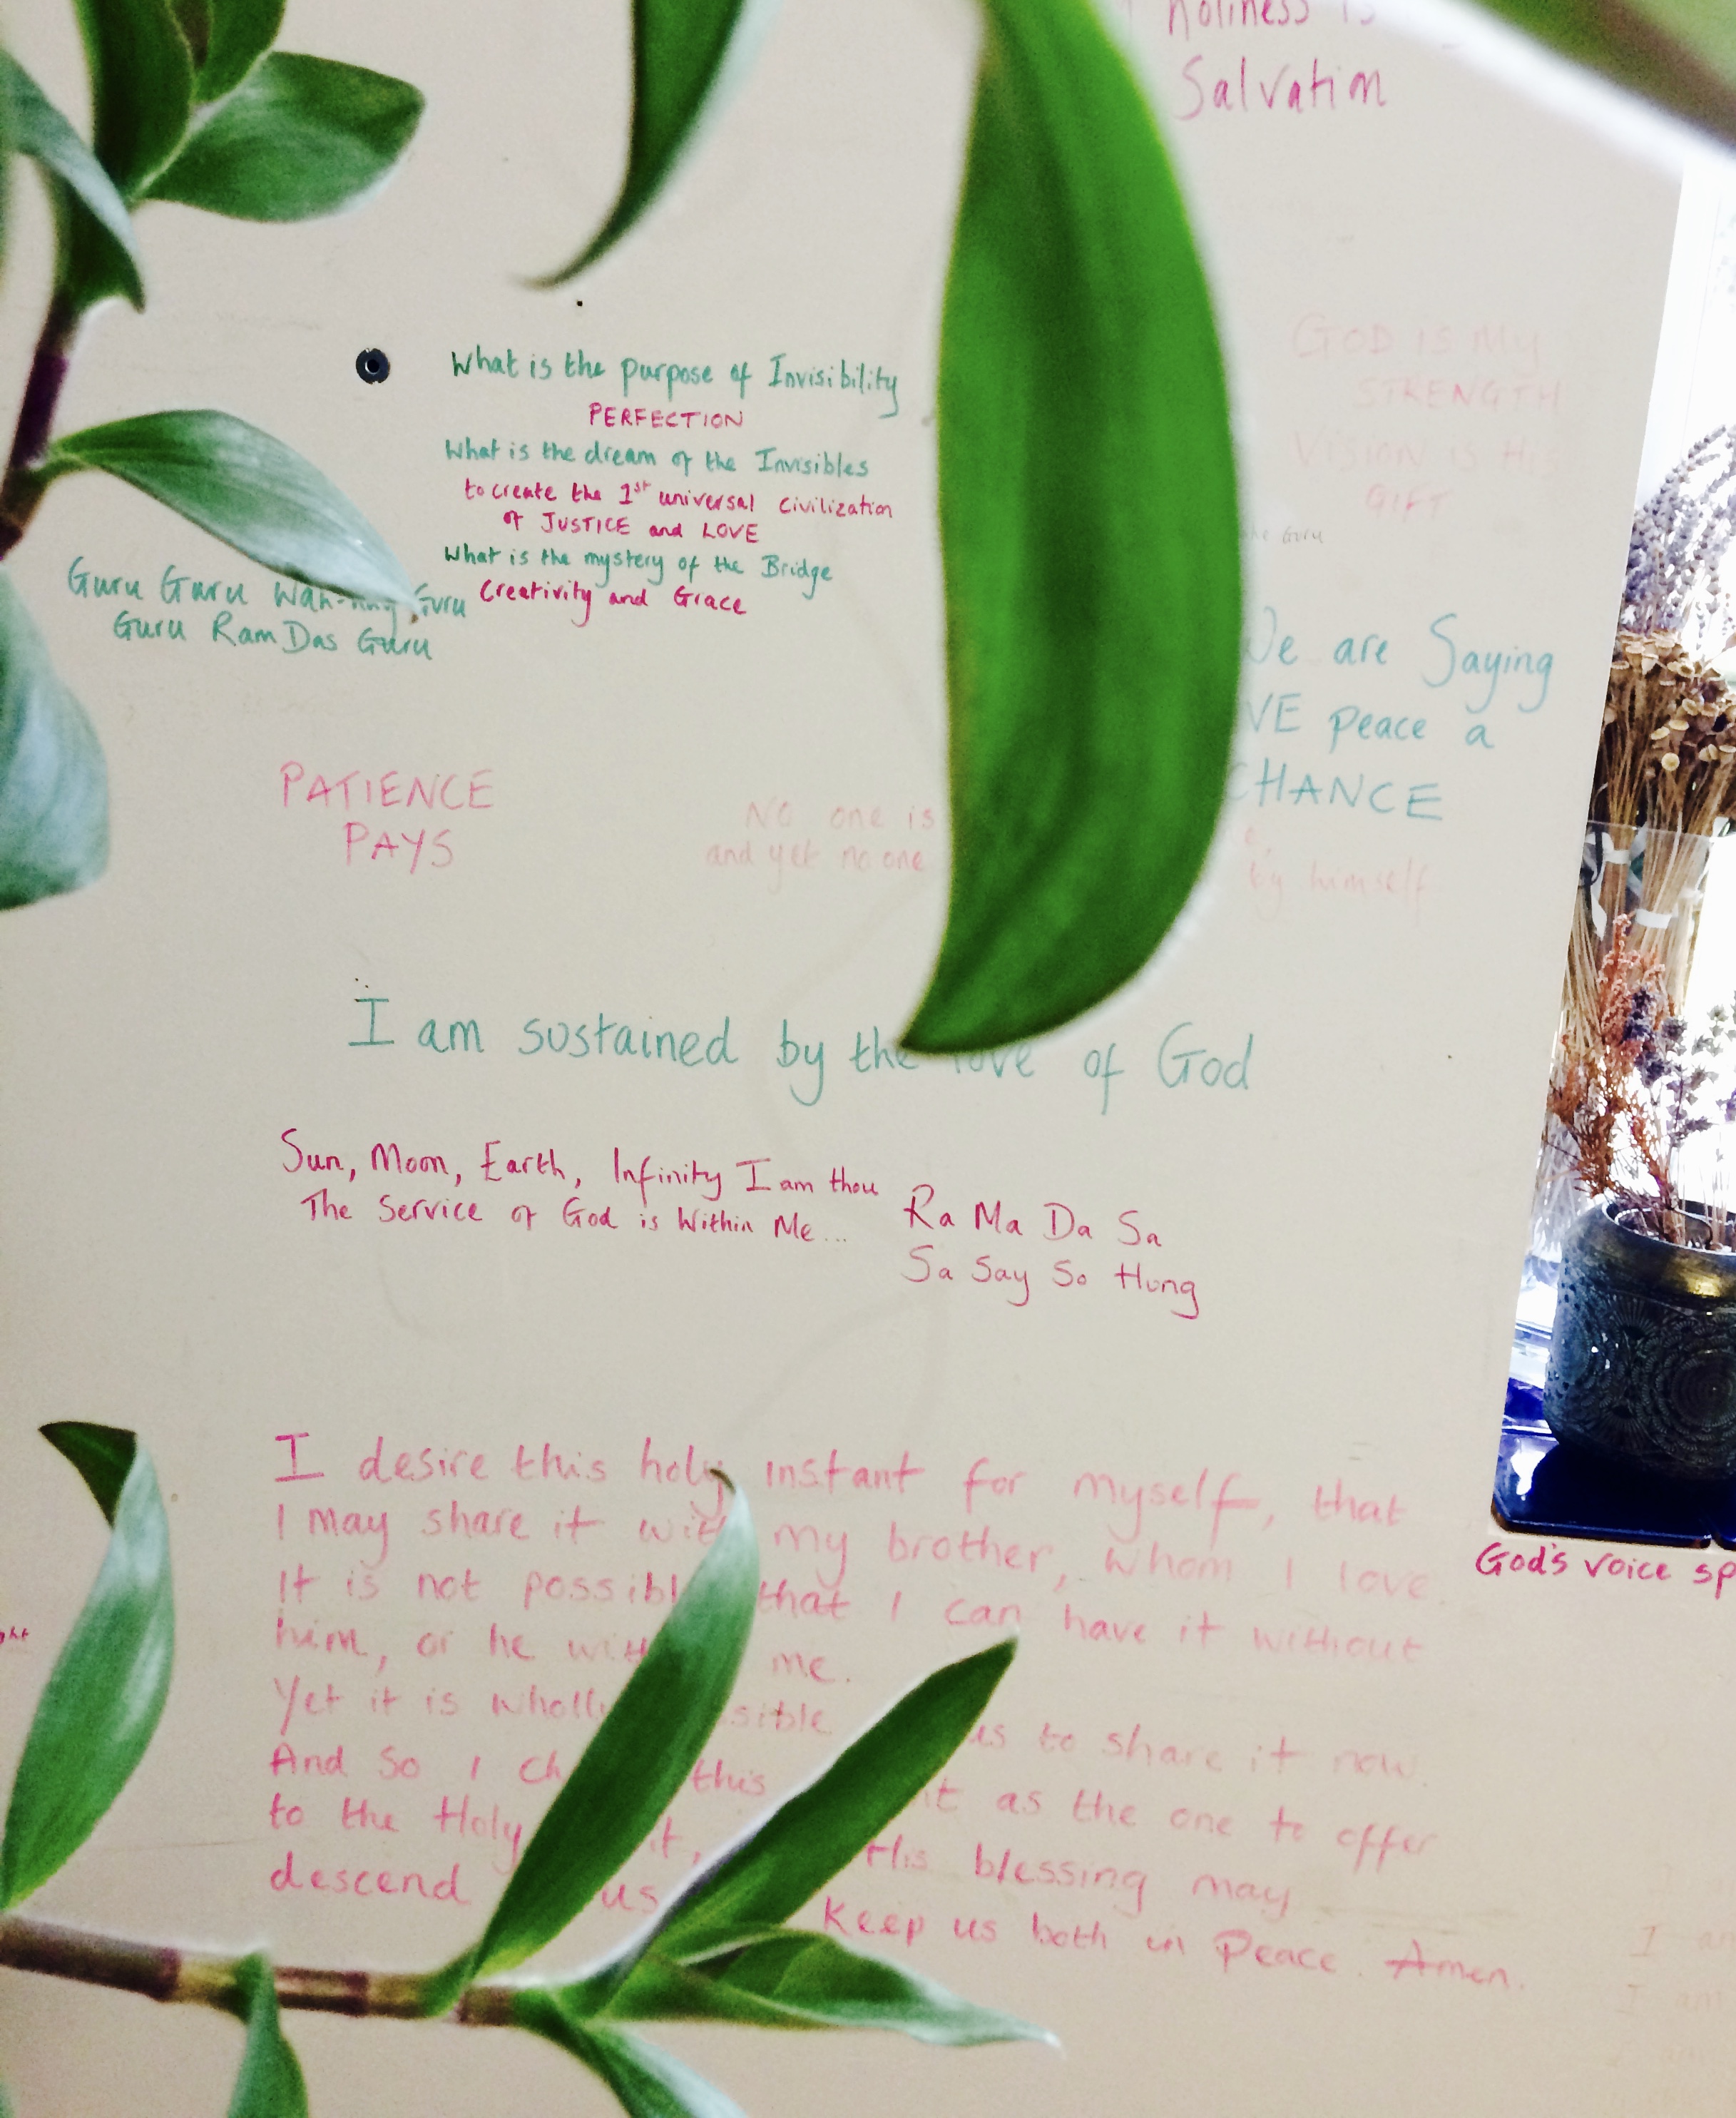 holiness is
Salvation
GOD IS My
STRENGTH
VISION IS
GIFT
Guru
What is the purpose of Invisibility
PERFECTION
What is the dream of the Invisibles
to create the 1st universal civilization
of JUSTICE and LOVE
What is the mystery of the Bridge
Creativity and Grace
Guru Guru Guru
Guru Ram Das Guru
We are Saying
peace a
CHANCE
PATIENCE
PAYS
NO one is
and yet no one by himself
I am sustained by the love of God
Sun, Moon, Earth, Infinity I am thou
The Service of God is Within Me...
Ra Ma Da Sa
Sa Say So Hung
I desire this holy instant for myself, that
I may share it with my brother, whom I love.
It is not possible that I can have it without
him, or he me.
Yet it is us to share it now.
And So I this as the one to offer
to the Holy His blessing may
descend us Keep us both in Peace. Amen.
God's voice
I
I